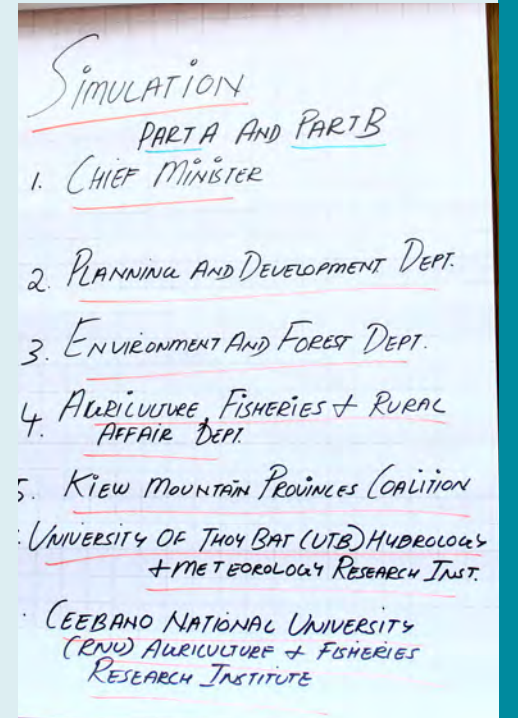 SIMULATION
PART A AND PART B
1. CHIEF MINISTER
2. PLANNING AND DEVELOPMENT DEPT.
3. ENVIRONMENT AND FOREST DEPT.
4. AGRICULTURE, FISHERIES + RURAL
AFFAIR DEPT.
5. KIEW MOUNTAIN PROVINCES COALITION
UNIVERSITY OF THOY BAT (UTB) HYDROLOGY
+ METEOROLOGY RESEARCH INST.
CEEBANO NATIONAL UNIVERSITY
(RNU) AGRICULTURE + FISHERIES
RESEARCH INSTITUTE